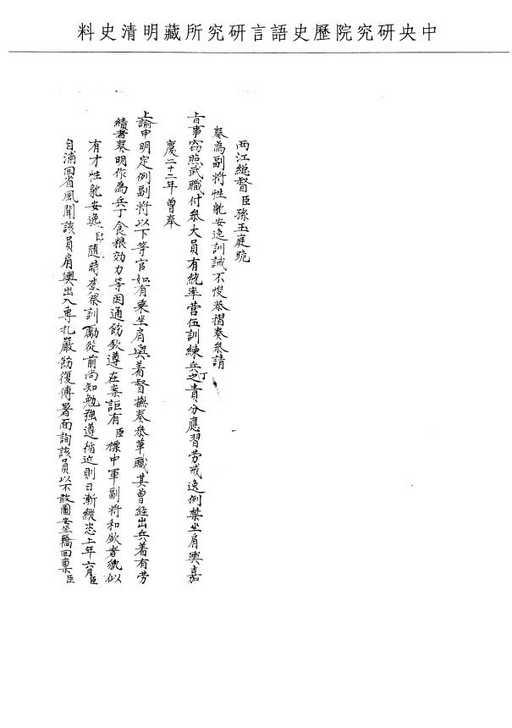 中央研究院歷史語言研究所藏明清史料
兩江總督臣孫玉庭跪
奏為副將性躭安逸訓誡不悛恭摺奏參請
旨事竊照武職付參大員有統率營伍訓練兵丁之責分應習勞戒逸例禁坐肩輿嘉
慶二十二年曾奉
上諭申明定例副將以下等官如有乘坐肩輿著督撫奏參革職其曾經出兵著有勞
績者奏明作為兵丁食粮効力等因通飭欽遵在案詎有臣標中軍副將和欽者貌似
有才性躭安逸臣隨時查察訓勵從前尚知勉強遵循近則日漸縱恣上年六月臣
自浦回省風聞該員肩輿出入專札嚴飭復傳署面詢該員以不敢圖安坐轎回稟臣